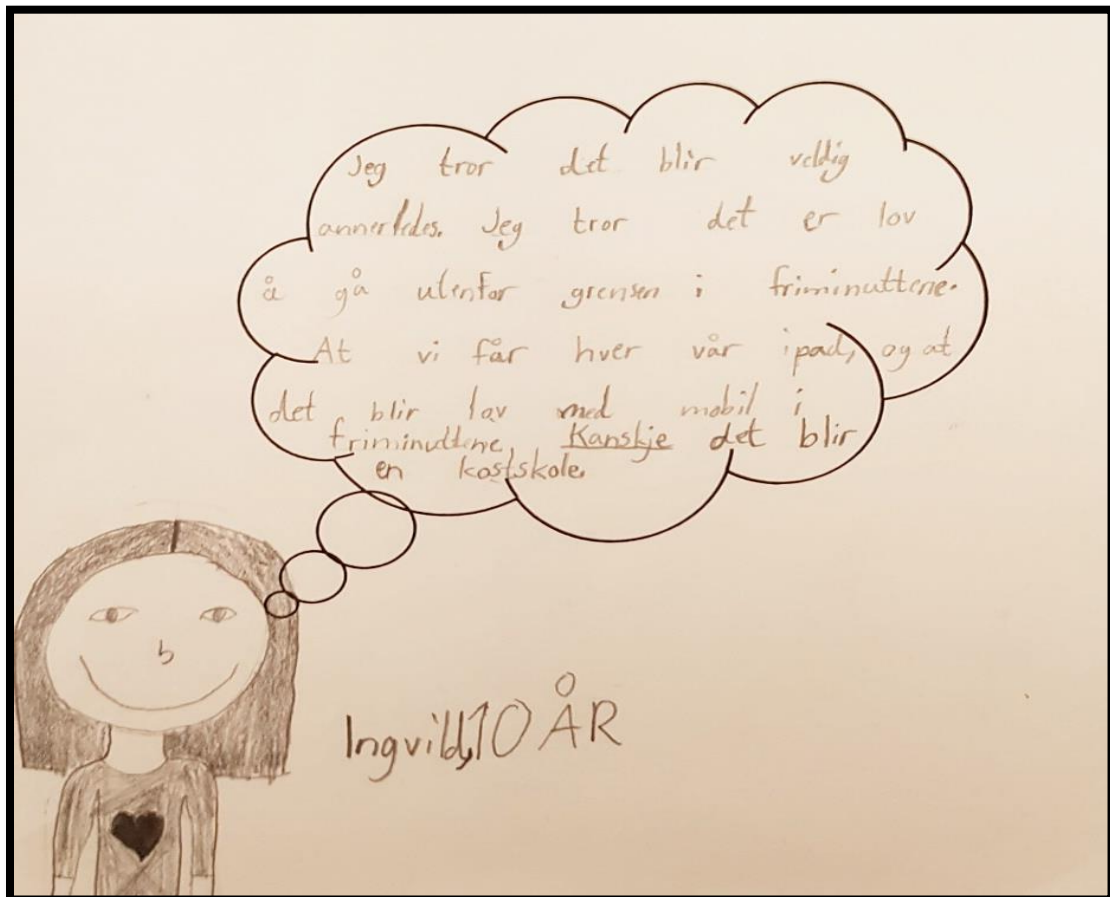 Jeg tror det blir veldig
annerledes. Jeg tror det er lov
å gå utenfor grensen i friminuttene.
At vi får hver vår ipad, og at
det blir lov med mobil i
friminuttene. Kanskje det blir
en kostskole.
Ingvild, 10 ÅR